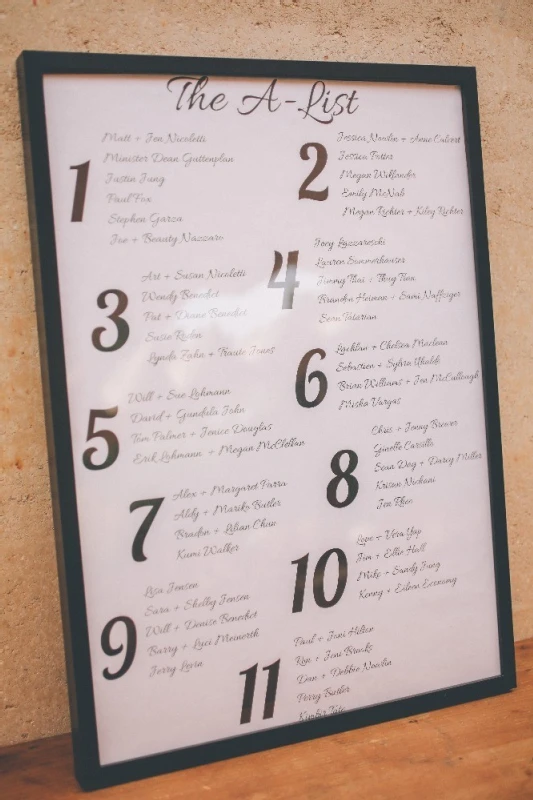 The A-List
1
Matt + Jen Nicoletti
Minister Dean Guttenplan
Justin Jung
Paul Fox
Stephen Garza
Joe + Beauty Nazzaro
2
Jessica Nowlin + Anne Calvert
Jessica Potter
Megan Willander
Emily McNab
Megan Richter + Kiley Richter
3
Art + Susan Nicoletti
Wendy Benedict
Pat + Diane Benedict
Susie
Lynda Zahn + Jones
4
Joey Lazzareschi
Lauren Sommerhauser
Jimmy Thai + Thuy Thuu
Brandon Heiman + Sami Naffziger
Sean
5
Will + Sue Lohmann
David + Gundula John
Tom Palmer + Jenice Douglas
Erik Lohmann + Megan McClellan
6
Lachlan + Chelsea Maclean
Sebastien + Sylvia Ubaldi
Brian Williams + Jen McCullough
Miska Vargas
7
Alex + Margaret Parra
Aldy + Mariko Butler
Bradon + Lilian Chau
Kumi Walker
8
Chris + Jenny Brower
Ginelle
Sean Dey + Darcy Miller
Kristen
Jen
9
Lisa Jensen
Sara + Shelby Jensen
Will + Denise Benedict
Barry + Luci Meinerth
Jerry Levin
10
Love + Vera Yap
Jim + Ellie Hall
Mike + Sandy Jung
Kenny + Eileen Economy
11
Paul + Joni Hilton
Ron + Joni Brooks
Dan + Debbie Nowlin
Perry Butler